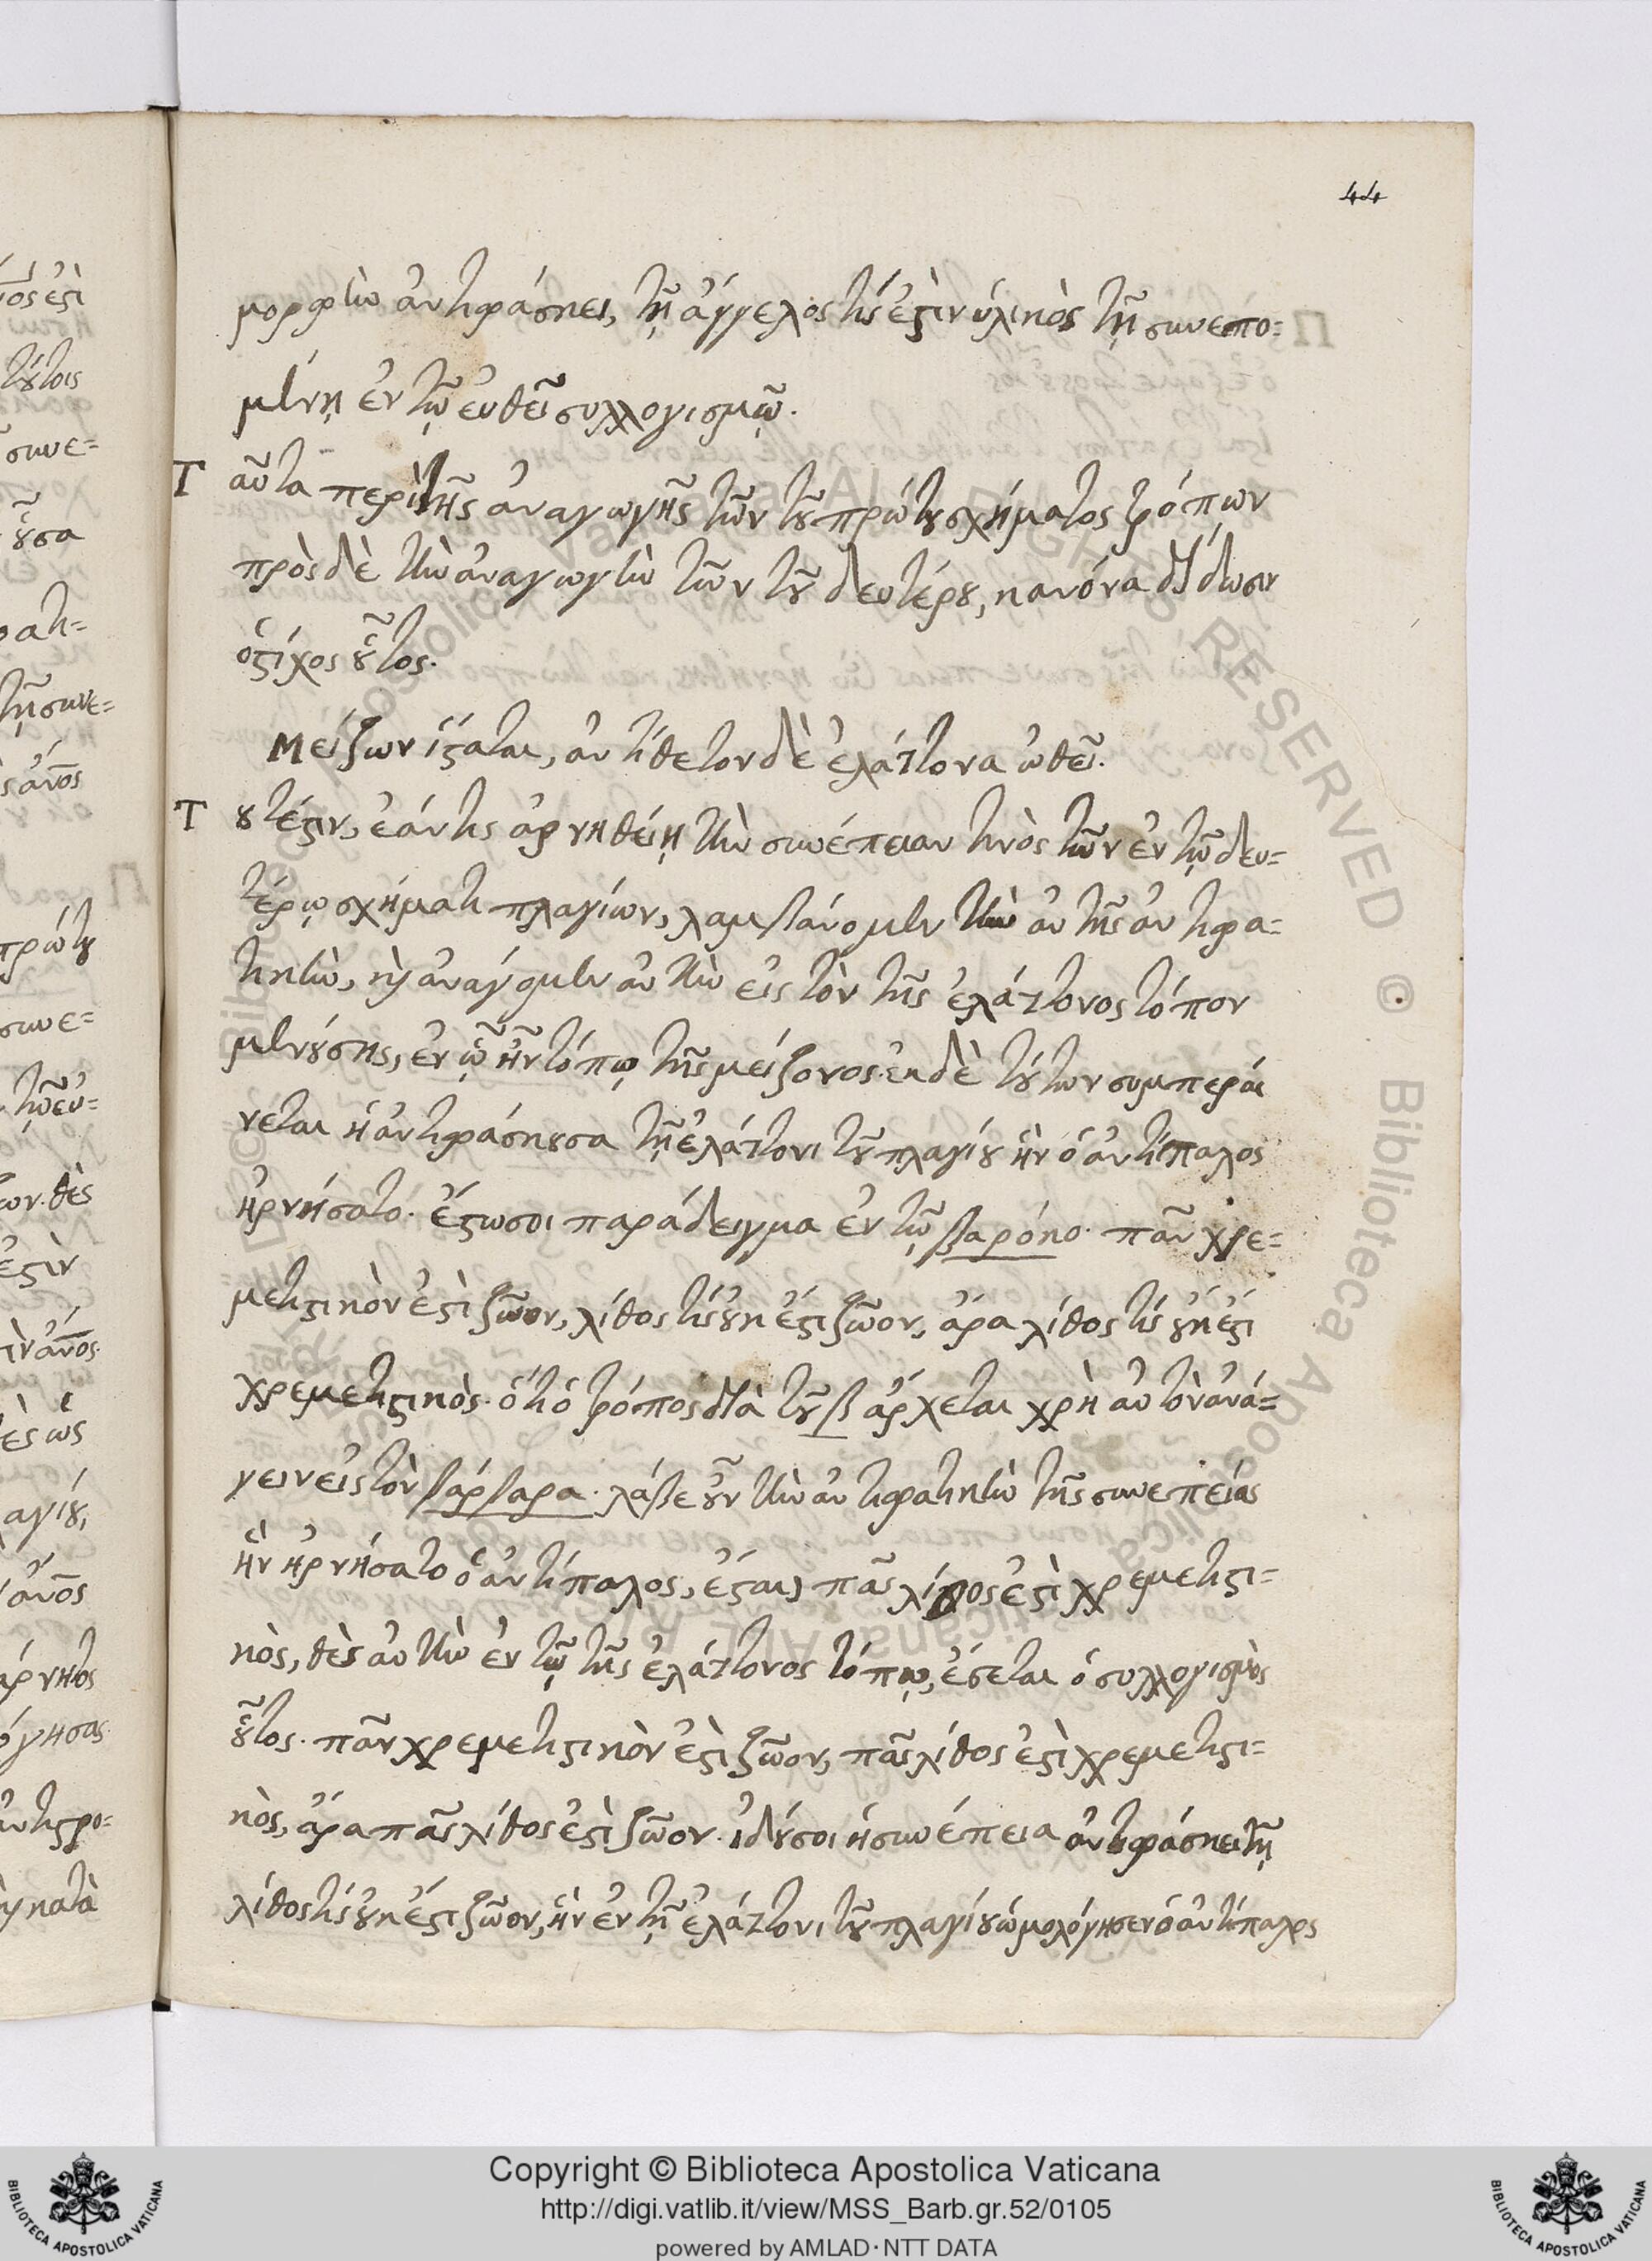 44
μορφὴν ἀντιφάσκει, τῇ ἄγγελος τίς ἐστὶν ὑλικὸς τῇ συνεπο=
μένῃ ἐν τῷ εὐθεῖ συλλογισμῷ.
Ταῦτα περὶ τῆς ἀναγωγῆς τῶν τοῦ πρώτου σχήματος τρόπων
πρὸς δὲ τὴν ἀναγωγὴν τῶν τοῦ δευτέρου, κανόνα δίδωσιν
ὁ στίχος οὗτος.
Μείζων ἵσταται, ἀντίθετον δὲ ἐλάττονα ὠθεῖ.
Τουτέστιν, ἐάν τις ἀρνηθείῃ τὴν συνέπειαν τινὸς τῶν ἐν τῷ δευ=
τέρῳ σχήματι πλαγίων, λαμβάνομεν τὴν αὐτῆς ἀντιφα=
τικὴν, καὶ ἀνάγομεν αὐτὴν εἰς τὸν τῆς ἐλάττονος τόπον
μενούσης, ἐν ᾧ ἦν τόπῳ τῆς μείζονος. ἐκ δὲ τούτων συμπεραί
νεται ἡ ἀντιφάσκουσα τῇ ἐλάττονι τοῦ πλαγίου ἣν ὁ ἀντίπαλος
ἠρνήσατο. ἔστω σοι παράδειγμα ἐν τῷ βαρόκο. πᾶν χρε=
μετιστικὸν ἐστὶ ζῶον, λίθος τίς οὐκ ἔστι ζῶον, ἄρα λίθος τίς οὐκ ἔστι
χρεμετιστικὸς. ὅτι ὁ τρόπος διὰ τοῦ β ἄρχεται χρὴ αὐτὸν ἀνά=
γειν εἰς τὸν βάρβαρα. λάβε οὖν τὴν ἀντιφατικὴν τῆς συνεπείας
ἣν ἠρνήσατο ὁ ἀντίπαλος, ἔσται πᾶς λίθος ἐστὶ χρεμετιστι=
κὸς, θὲς αὐτὴν ἐν τῷ τῆς ἐλάττονος τόπῳ, ἔσεται ὁ συλλογισμὸς
οὗτος. πᾶν χρεμετιστικὸν ἐστὶ ζῶον, πᾶς λίθος ἐστὶ χρεμετιστι=
κὸς, ἄρα πᾶς λίθος ἐστὶ ζῶον. ἰδού σοι ἡ συνέπεια ἀντιφάσκει τῇ
λίθος τίς οὐκ ἔστι ζῶον, ἣν ἐν τῇ ἐλάττονι τοῦ πλαγίου ὡμολόγησεν ὁ ἀντίπαλος
Copyright © Biblioteca Apostolica Vaticana
http://digi.vatlib.it/view/MSS_Barb.gr.52/0105
powered by AMLAD·NTT DATA